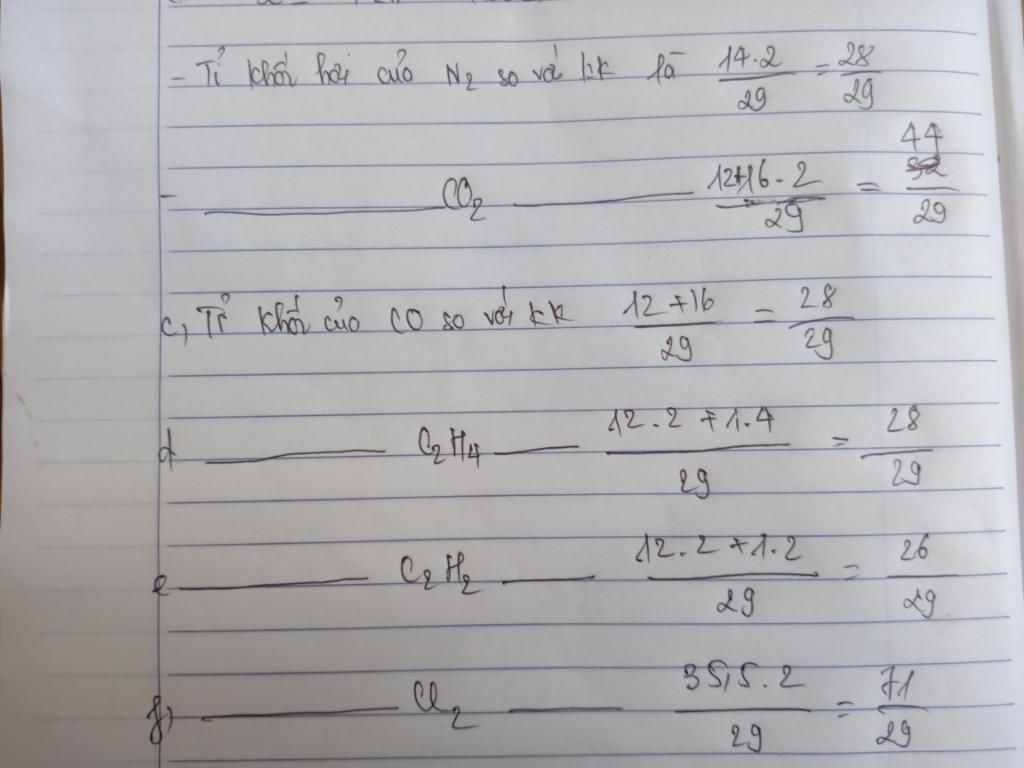 - Tỉ khối hơi của N2 so với kk là 14.2/29 = 28/29
- ——— CO2 ——— 12+16.2/29 = 44/29
c, Tỉ khối của CO so với kk 12+16/29 = 28/29
d ——— C2H4 ——— 12.2+1.4/29 = 28/29
e ——— C2H2 ——— 12.2+1.2/29 = 26/29
f, ——— Cl2 ——— 35,5.2/29 = 71/29